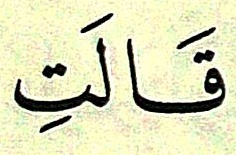 قَالَتِ